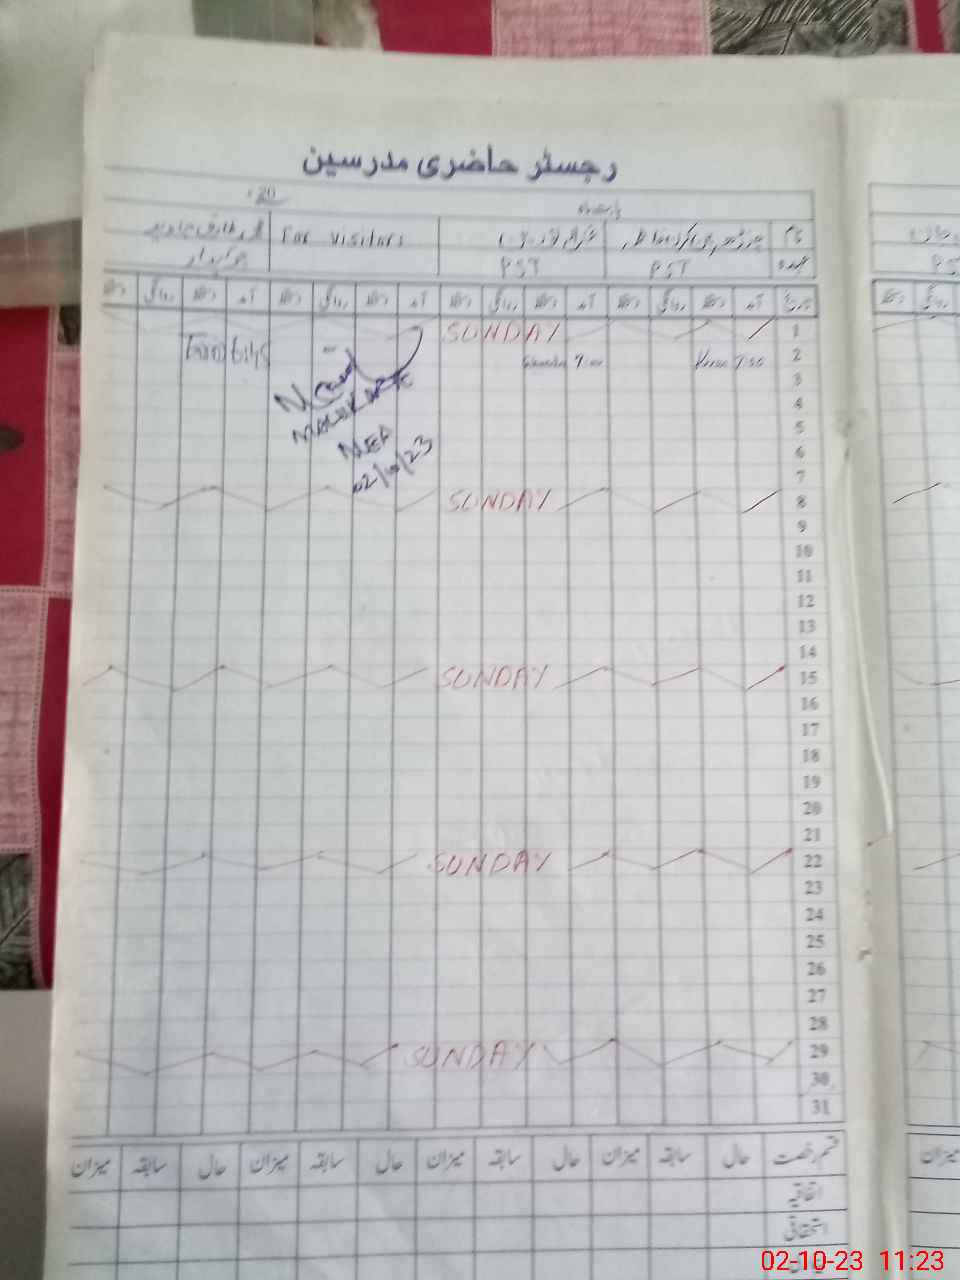 رجسٹر حاضری مدرسین
20
نام
For Visitors
عہدہ PST PST چوکیدار
تاریخ آمد دستخط روانگی دستخط آمد دستخط روانگی دستخط آمد دستخط روانگی دستخط آمد دستخط روانگی دستخط
1 SUNDAY
2 7:50 7:00 6:45
3
4
5
6
MEA
02/10/23
7
8 SUNDAY
9
10
11
12
13
14
15 SUNDAY
16
17
18
19
20
21
22 SUNDAY
23
24
25
26
27
28
29 SUNDAY
30
31
قسم رخصت حال سابقہ میزان حال سابقہ میزان حال سابقہ میزان حال سابقہ میزان
اتفاقیہ
استحقاقی
میزان
02-10-23 11:23